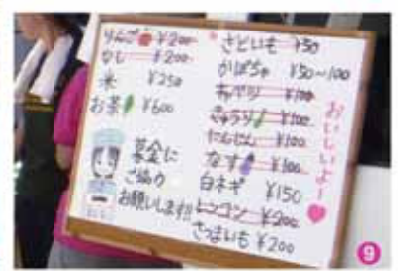 りんご ¥200
なし ¥200
米 ¥250
お茶 ¥600
募金に
ご協力
お願いします!!
さといも ¥50
かぼちゃ ¥50~100
キャベツ ¥100
きゅうり ¥100
にんじん ¥100
なす ¥100
白ネギ ¥150
レンコン ¥200
さつまいも ¥200
おいしいよー
9